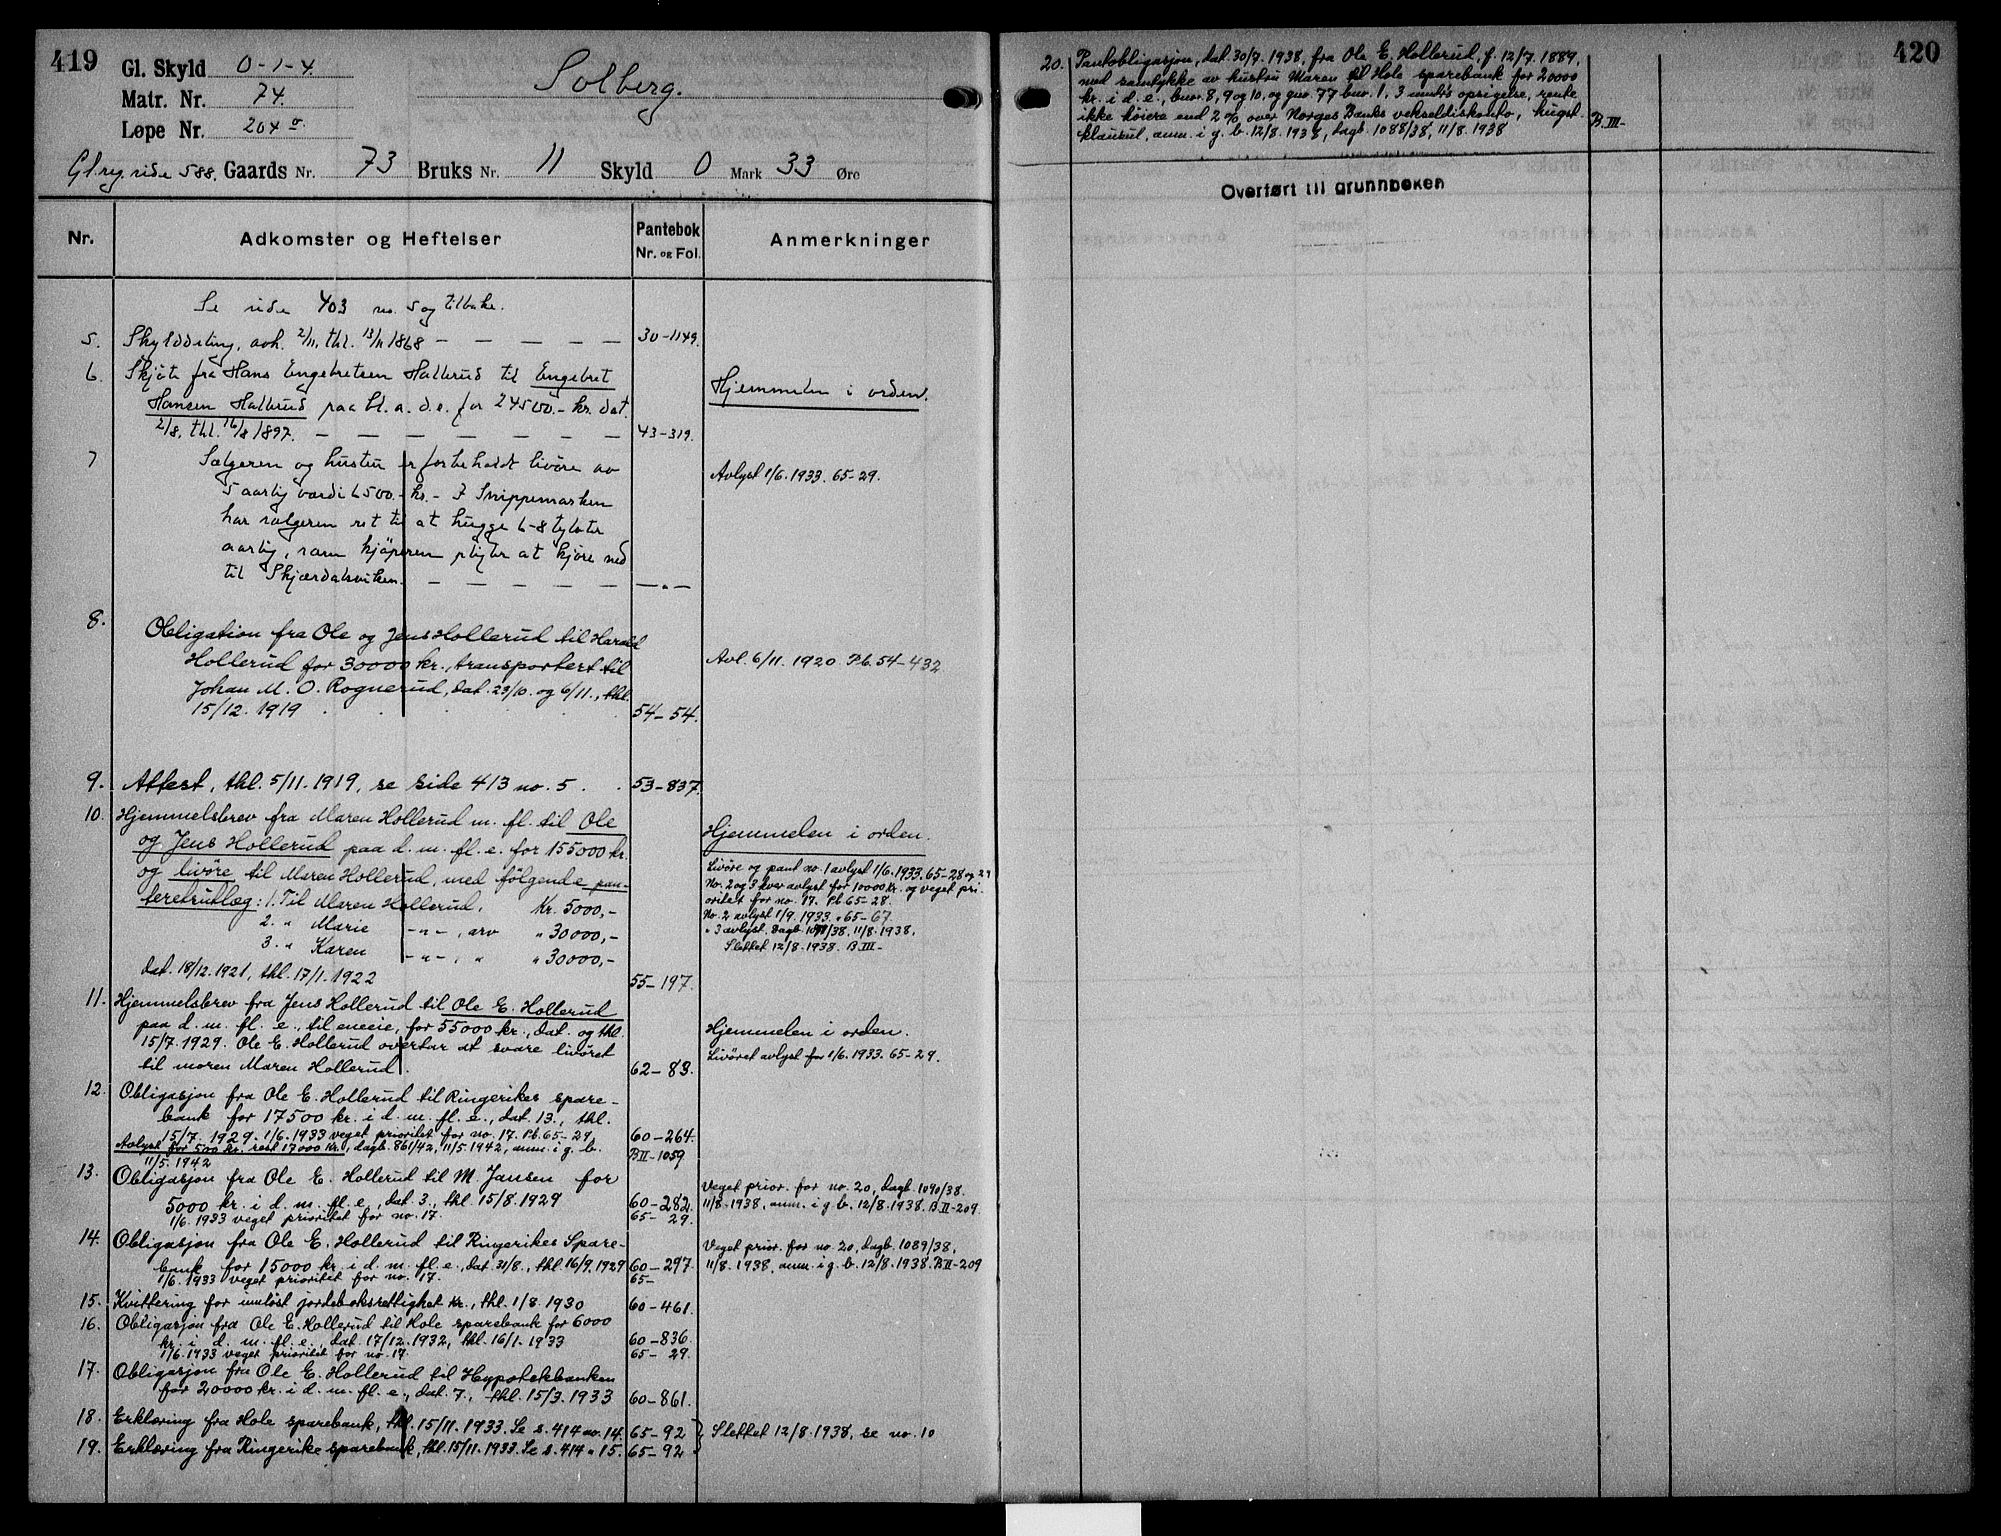 419
Gl. Skyld 0-1-4.
Matr. Nr. 74.
Løpe Nr. 204 a.
Solberg.
Gl reg. side 588. Gaards Nr. 73 Bruks Nr. 11 Skyld 0 Mark 33 Øre
Nr. Adkomster og Heftelser Pantebok Nr. og Fol. Anmerkninger
Se side 403 no. 5 og tilbake.
5. Skylddeling, avh. 2/11, thl. 13/11 1868 — — — — — 30-1149.
6. Skjöte fra Hans Engebretsen Hallerud til Engebret
Hansen Hallerud paa bl. a. d. e. for 24500.- kr. dat.
2/8, thl. 16/8 1897. — — — — — — — 43-319.
Hjemmelen i orden.
7 Sælgeren og hustru er forbeholdt livöre av
5 aarlig værdi 6500.- kr. - I Snippemarken
har sælgeren ret til at hugge 6-8 tylvter
aarlig, som kjöperen pligter at kjöre ned
til Skjærdalsviken. — — — — — —"—
Avlyst 1/6. 1933. 65-29.
8. Obligation fra Ole og Jens Hollerud til Harald
Hollerud for 30000 kr., transportert til
Johan M. O. Rognerud, dat. 23/10. og 6/11., thl.
15/12. 1919 . . . . 54-54.
Avl. 6/11. 1920. Pb. 54-432
9. Attest, thl. 5/11. 1919, se side 413 no. 5 . . 53-837.
10. Hjemmelsbrev fra Maren Hollerud m. fl. til Ole
og Jens Hollerud paa d. m. fl. e. for 155000 kr.
og livöre til Maren Hollerud, med fölgende pan-
teretrutlæg: 1. Til Maren Hollerud, Kr. 5000,-
2. " Marie -"-, arv " 30000,-
3. " Karen -"-, " " 30000,-
dat. 18/12. 1921, thl. 17/1. 1922 55-197.
Hjemmelen i orden.
Livöre og pant no. 1 avlyst 1/6. 1933. 65-28 og 29
No. 2 og 3 hver avlyst for 10000 kr. og veget pri-
oritet for no. 17. Pb. 65-28.
No. 2 avlyst 1/9. 1933. " 65-67.
" 3 avlyst. Dagb. 1091/38, 11/8. 1938,
Slettet 12/8. 1938. B III-
11. Hjemmelsbrev fra Jens Hollerud til Ole E. Hollerud
paa d. m. fl. e., til eneeie, for 55000 kr., dat. og thl.
15/7. 1929. Ole E. Hollerud overtar at svare livöret
til moren Maren Hollerud. 62-83.
Hjemmelen i orden.
Livöret avlyst for 1/6. 1933. 65-29.
12. Obligasjon fra Ole E. Hollerud til Ringerikes spare-
bank for 17500 kr. i d. m. fl. e., dat. 13., thl.
15/7. 1929. 1/6. 1933 veget prioritet for no. 17. Pb. 65-29. 60-264.
Avlyst for 500 kr., rest 17000 kr., dagb. 861/42, 11/5. 1942, anm. i g. b. B II-1059
11/5. 1942
13. Obligasjon fra Ole E. Hollerud til M. Jansen for
5000 kr. i d. m. fl. e., dat. 3., thl. 15/8. 1929 60-282.
1/6. 1933 veget prioritet for no. 17. 65- 29.
Veget prior. for no. 20, dagb. 1090/38.
11/8. 1938, anm. i g. b. 12/8. 1938. B II-209.
14. Obligasjon fra Ole E. Hollerud til Ringerikes Spare-
bank for 15000 kr. i d. m. fl. e., dat. 31/8., thl. 16/9. 1929 60-297.
1/6. 1933 veget prioritet for no. 17. 65-
Veget prior. for no. 20, dagb. 1089/38,
11/8. 1938, anm. i g. b. 12/8. 1938. B II-209
15. Kvittering for innlöst jordeboksrettighet kr., thl. 1/8. 1930 60-461.
16. Obligasjon fra Ole E. Hollerud til Hole sparebank for 6000
kr. i d. m. fl. e., dat. 17/12. 1932, thl. 16/1. 1933 60-836.
1/6. 1933 veget prioritet for no. 17. 65- 29.
17. Obligasjon fra Ole E. Hollerud til Hypotekbanken
for 20000 kr. i d. m. fl. e., dat. 7., thl. 15/3. 1933 60-861.
18. Erklæring fra Hole sparebank, thl. 15/11. 1933. Se s. 414 no. 14. 65-92
19. Erklæring fra Ringerike sparebank, thl. 15/11. 1933. Se s. 414 " 15. 65-92
Slettet 12/8. 1938, se no. 10
420
20. Pantobligasjon, dat. 30/7. 1938, fra Ole E. Hollerud, f. 12/7. 1889,
med samtykke av hustru Maren til Hole sparebank for 20000
kr. i d. e., bnr. 8, 9 og 10, og gnr. 77 bnr. 1, 3 mndr's opsigelse, rente
ikke höiere end 2 % over Norges Banks vekseldiskonto, hugst-
klausul, anm. i g. b. 12/8. 1938, dagb. 1088/38, 11/8. 1938 B III-
Overført til grunnboken